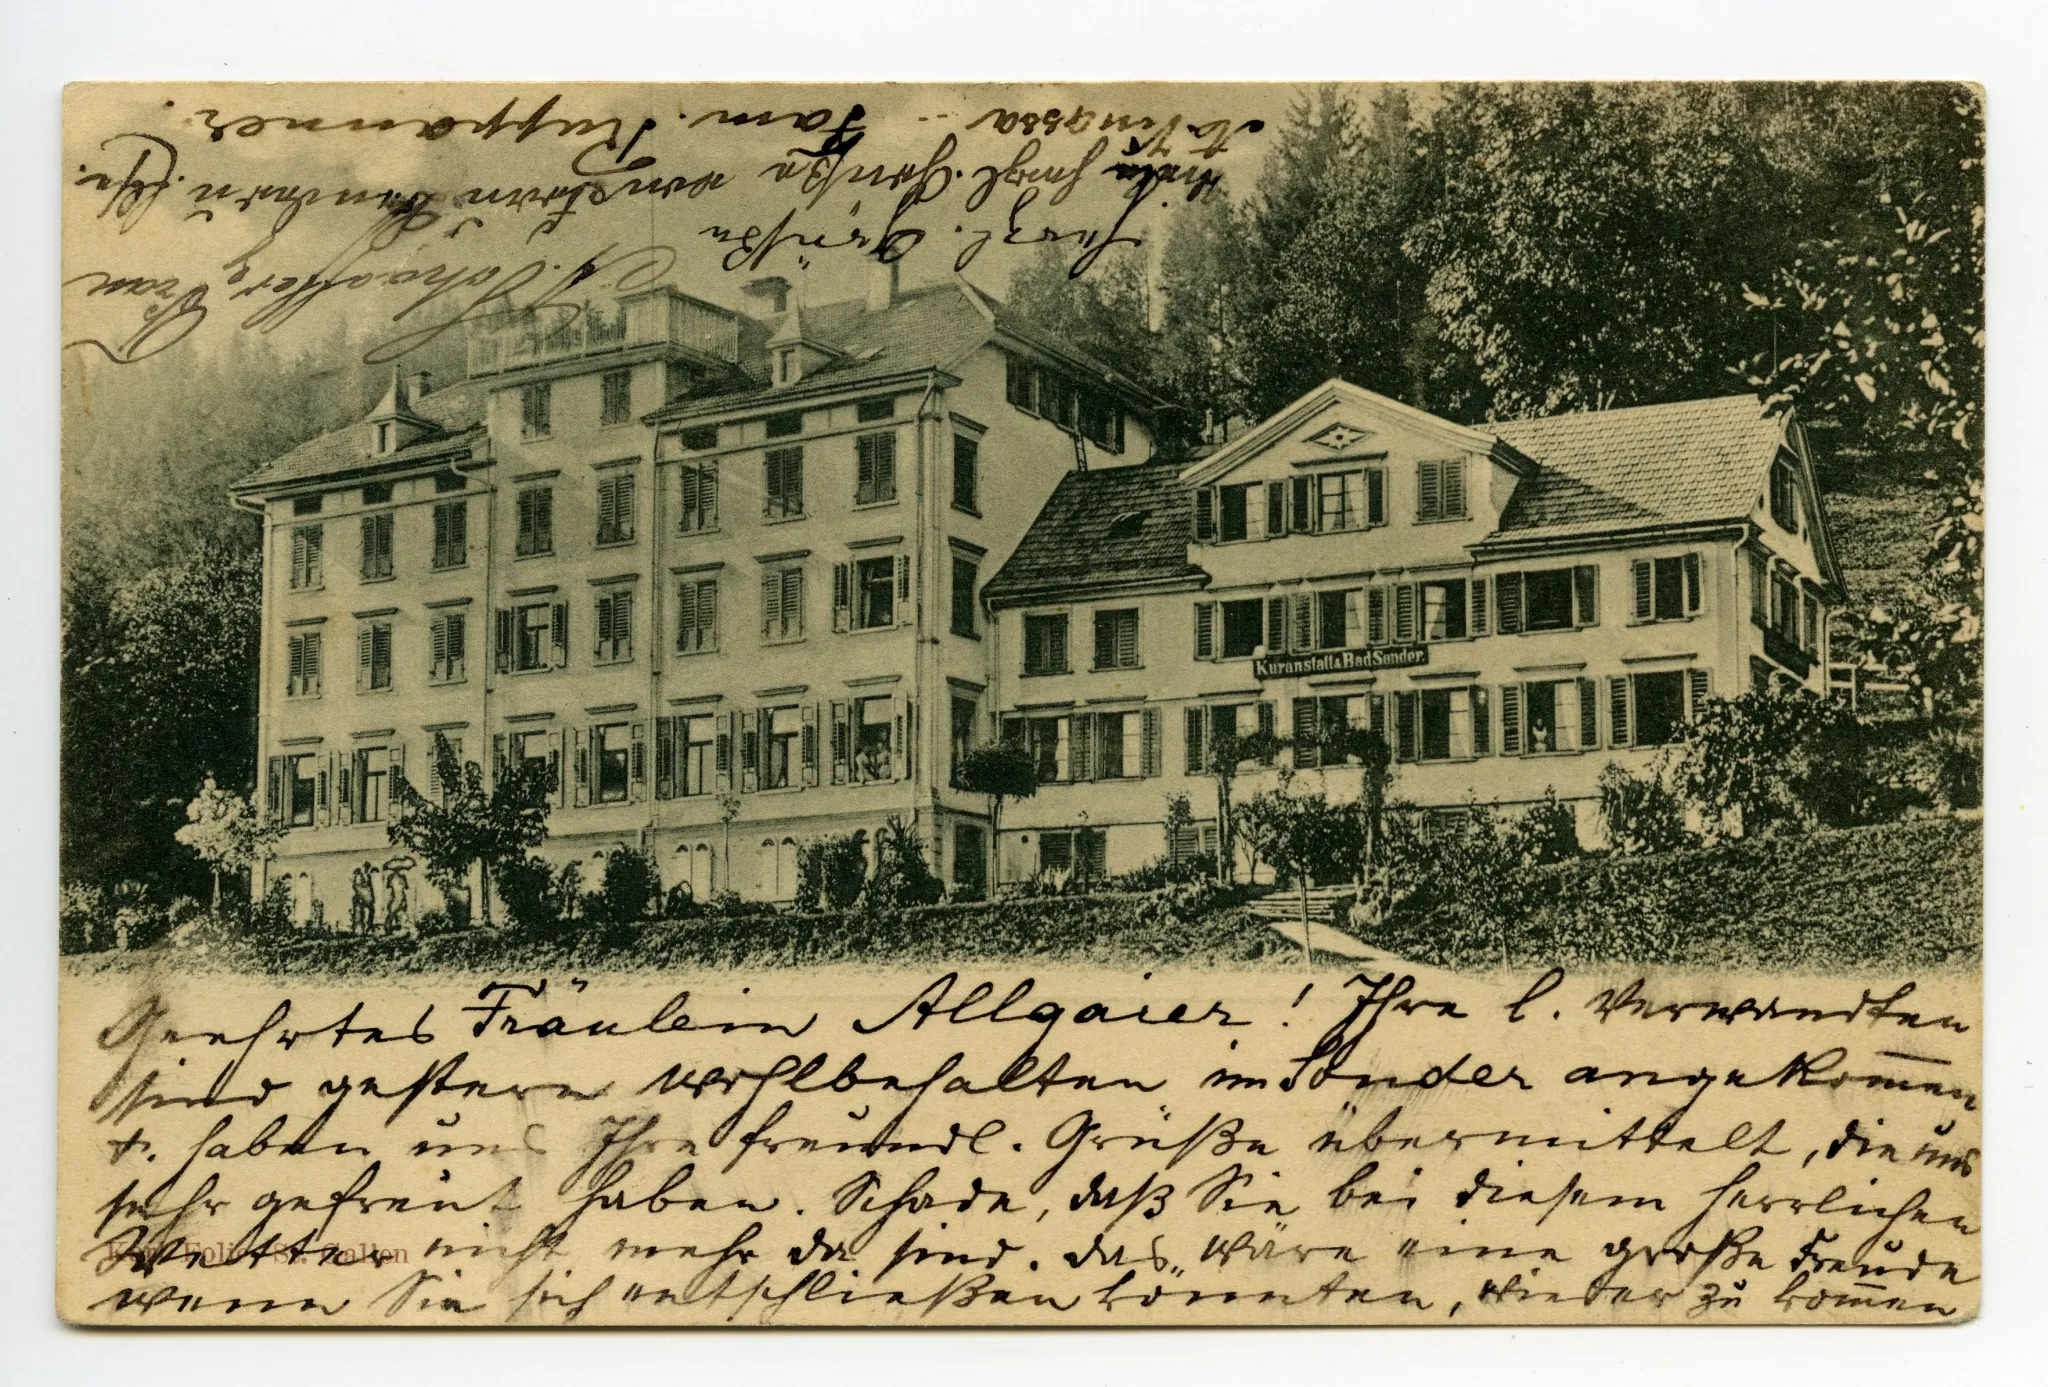 Kuranstalt & Bad Sonder.
Geehrtes Fräulein Allgaier! Ihre l. Verwandten
sind gestern wohlbehalten im Sonder angekom̅en
u. haben uns Ihre freundl. Grüße übermittelt, die uns
sehr gefreut haben. Schade, daß Sie bei diesem herrlichen
Wetter nicht mehr da sind. Das wäre eine große Freude
wenn Sie sich entschließen könnten, wieder zu kom̅en
St. Gallen
Herzl. Grüße
Viele herzl. Grüße von
Fam. Ruppanner.
Frau